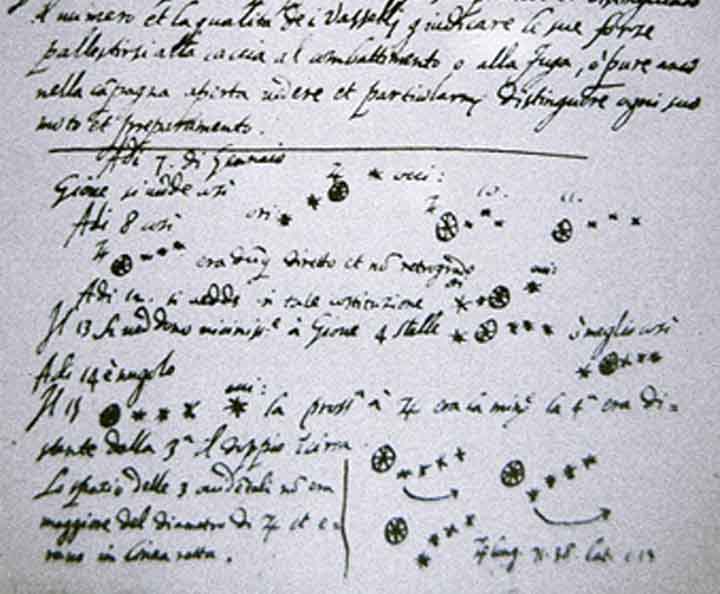 il numero et la qualità de i Vasselli giudicare le sue forze
pallestirsi alla caccia al combattimento o alla fuga, ò pure anco
nella capagna aperta vedere et particolarm distinguere ogni suo
moto et preparamento.
Adi 7. di Gennaio
Gioue si uede così ♃ occ:
Adi 8 così ori ♃ 10. 11.
♃ era diretto et nō retrogrado
Adi 12. si uedde in tale costituzione
Il 13 si ueddono à Gioue 4 stelle ò meglio così
Adi 14 è nugolo
Il 15 la pross à ♃ era la min la 4 era di=
stante dalla 3 il doppio
Lo spazio delle 3 nō era
maggiore del diametro di ♃ et e=
rano in linea retta.
♃ long. 71. 38 Lat. 1. 13